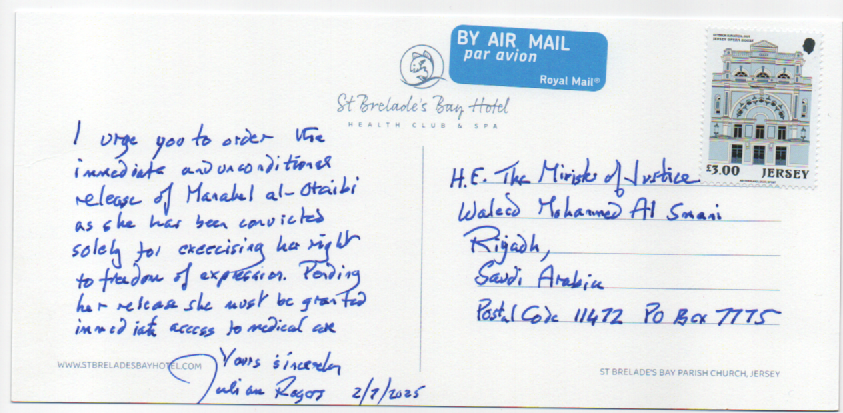 BY AIR MAIL
par avion
Royal Mail®
St Brelade's Bay Hotel
HEALTH CLUB & SPA
£3.00 JERSEY
I urge you to order the
immediate and unconditional
release of Manahel al-Otaibi
as she has been convicted
solely for exercising her right
to freedom of expression. Pending
her release she must be granted
immediate access to medical care
Yours sincerely
Julian Rogers 2/7/2025
H.E. The Minister of Justice
Waleed Mohammed Al Smani
Riyadh,
Saudi Arabia
Postal Code 11472 PO Box 7775
WWW.STBRELADESBAYHOTEL.COM
ST BRELADE'S BAY PARISH CHURCH, JERSEY